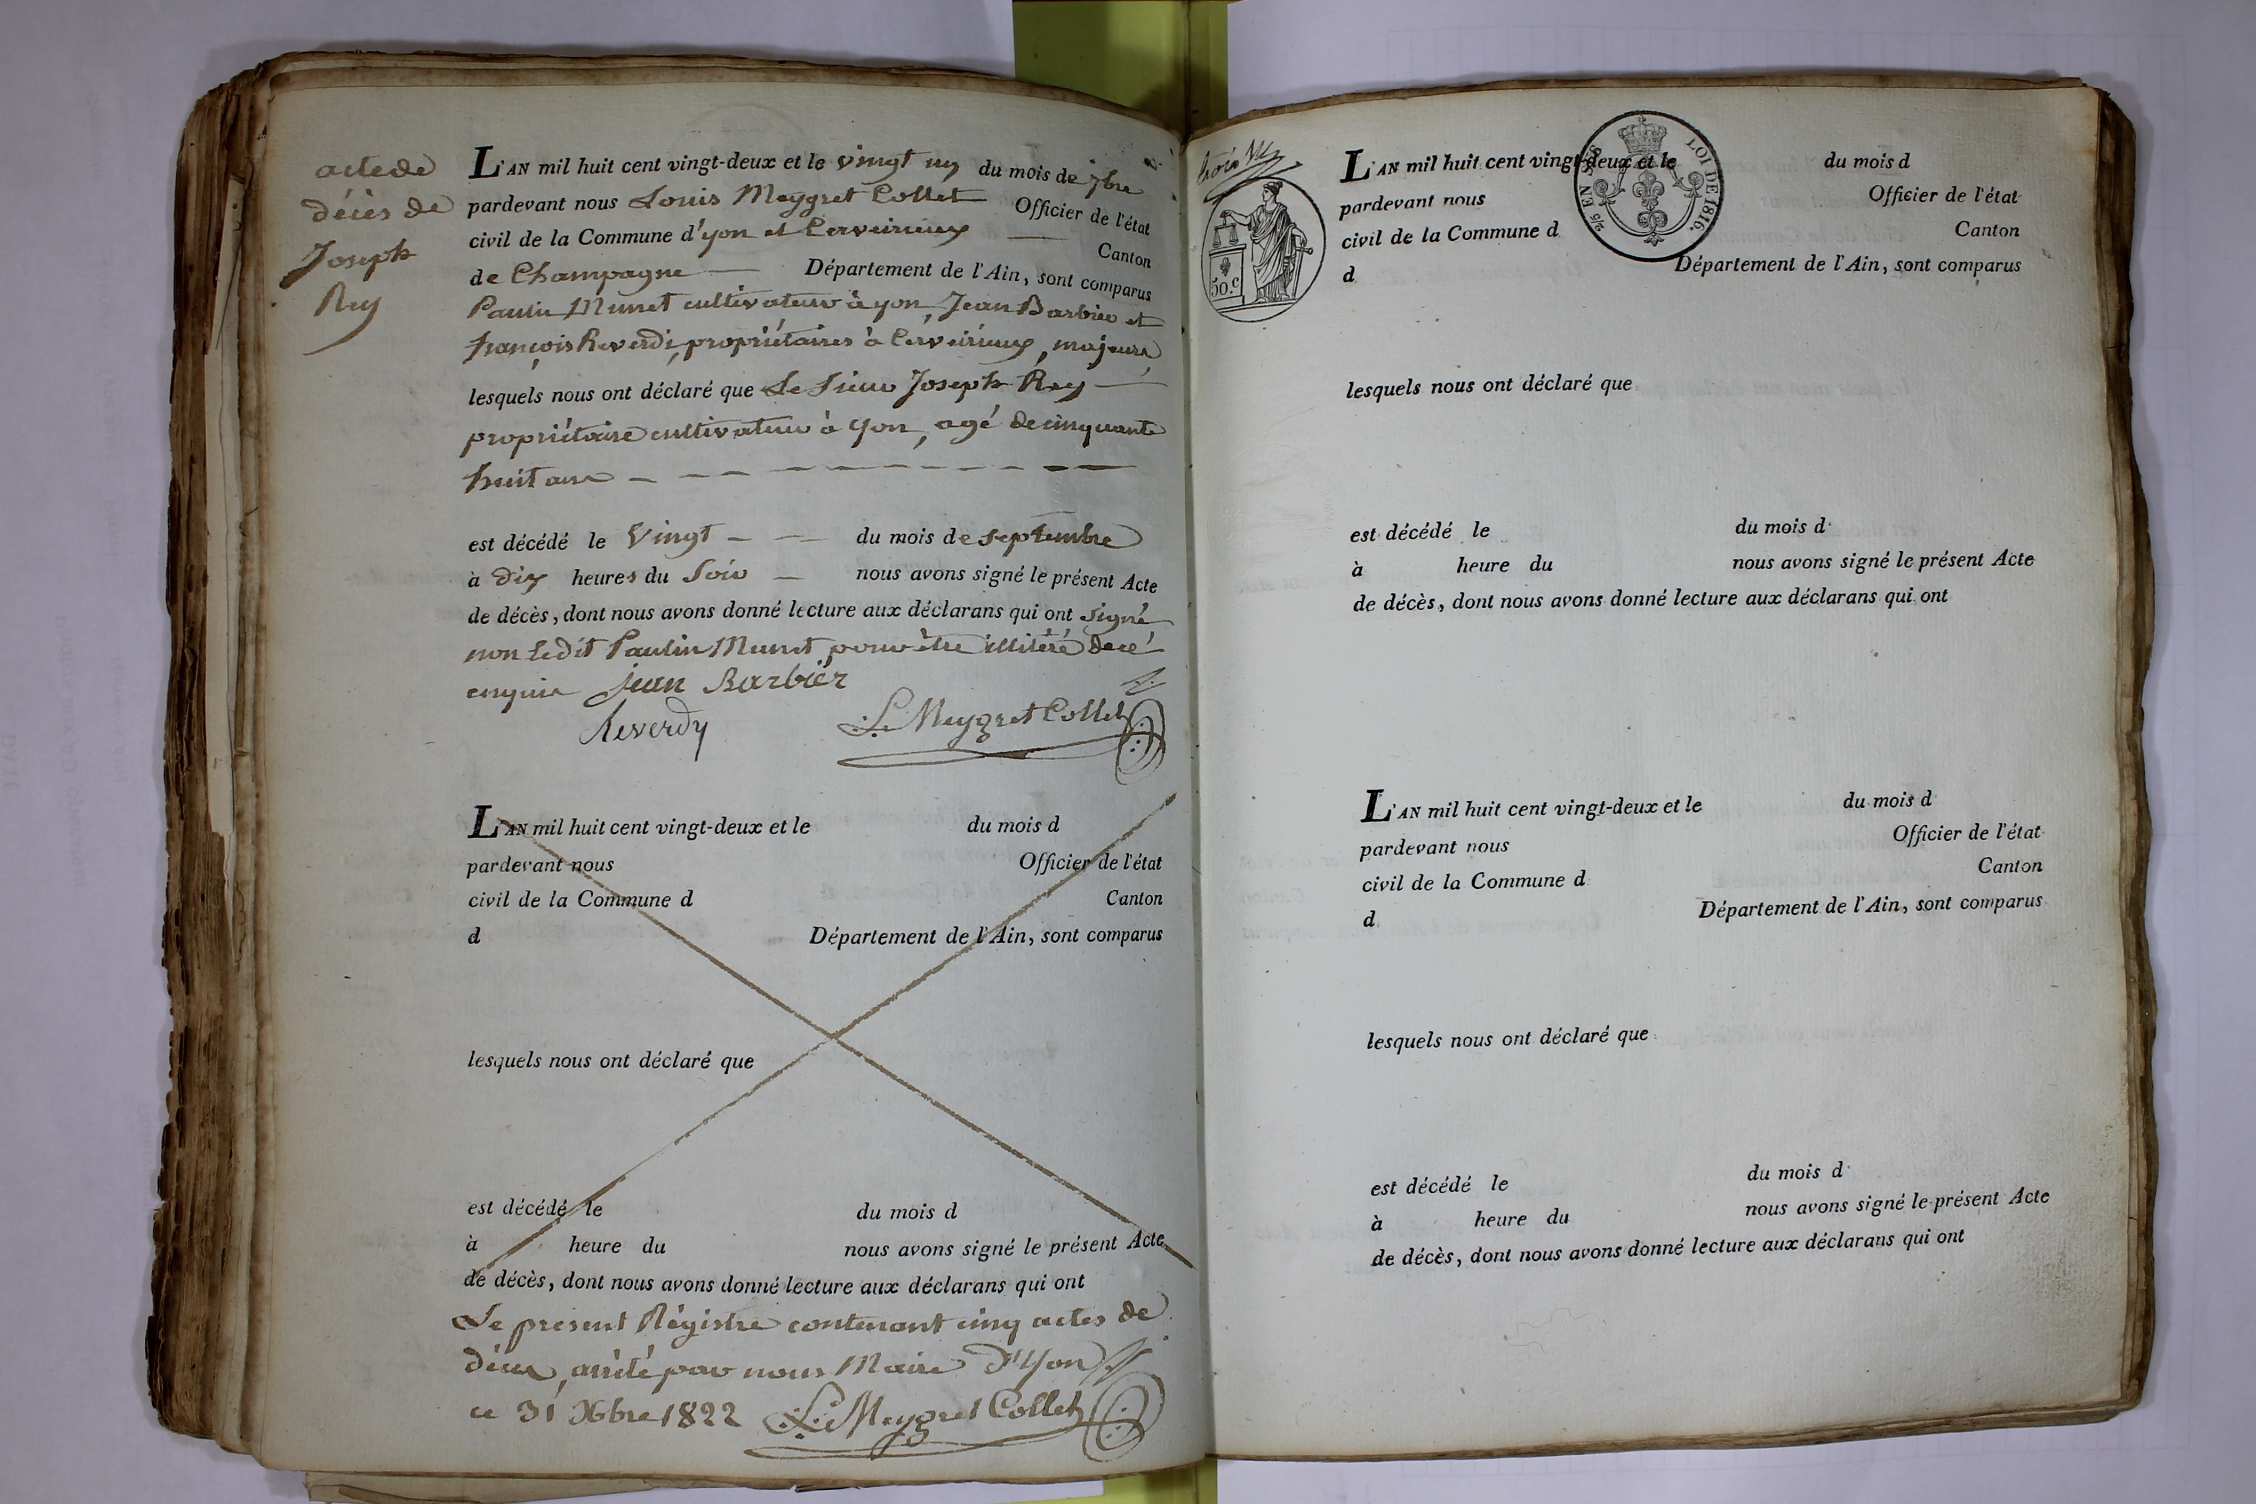 acte de
décès de
Joseph
Rey
L'AN mil huit cent vingt-deux et le vingt un du mois de 7bre
pardevant nous Louis Meygret Collet Officier de l'état
civil de la Commune d'yon et Cerveirieux Canton
de Champagne Département de l'Ain, sont comparus
Paulin Munet cultivateur à yon, Jean Barbier et
françois Reverdi, propriétaires à Cerveirieux, majeurs,
lesquels nous ont déclaré que Le Sieur Joseph Rey
propriétaire cultivateur à yon, agé de cinquante
huit ans
est décédé le Vingt du mois de septembre
à dix heures du Soir nous avons signé le présent Acte
de décès, dont nous avons donné lecture aux déclarans qui ont signé
non Ledit Paulin Munet pour être illitéré de ce
enquis Jean Barbier
Reverdy L. Meygret Collet
L'AN mil huit cent vingt-deux et le du mois d
pardevant nous Officier de l'état
civil de la Commune d Canton
d Département de l'Ain, sont comparus
lesquels nous ont déclaré que
est décédé le du mois d
à heure du nous avons signé le présent Acte
de décès, dont nous avons donné lecture aux déclarans qui ont
Le present Régistre contenant cinq actes de
décès, arrêté par nous Maire d'Yon
ce 31 Xbre 1822 L. Meygret Collet
trois
50.c
2/5 EN SUS LOI DE 1816.
L'AN mil huit cent vingt-deux et le du mois d
pardevant nous Officier de l'état
civil de la Commune d Canton
d Département de l'Ain, sont comparus
lesquels nous ont déclaré que
est décédé le du mois d
à heure du nous avons signé le présent Acte
de décès, dont nous avons donné lecture aux déclarans qui ont
L'AN mil huit cent vingt-deux et le du mois d
pardevant nous Officier de l'état
civil de la Commune d Canton
d Département de l'Ain, sont comparus
lesquels nous ont déclaré que
est décédé le du mois d
à heure du nous avons signé le présent Acte
de décès, dont nous avons donné lecture aux déclarans qui ont